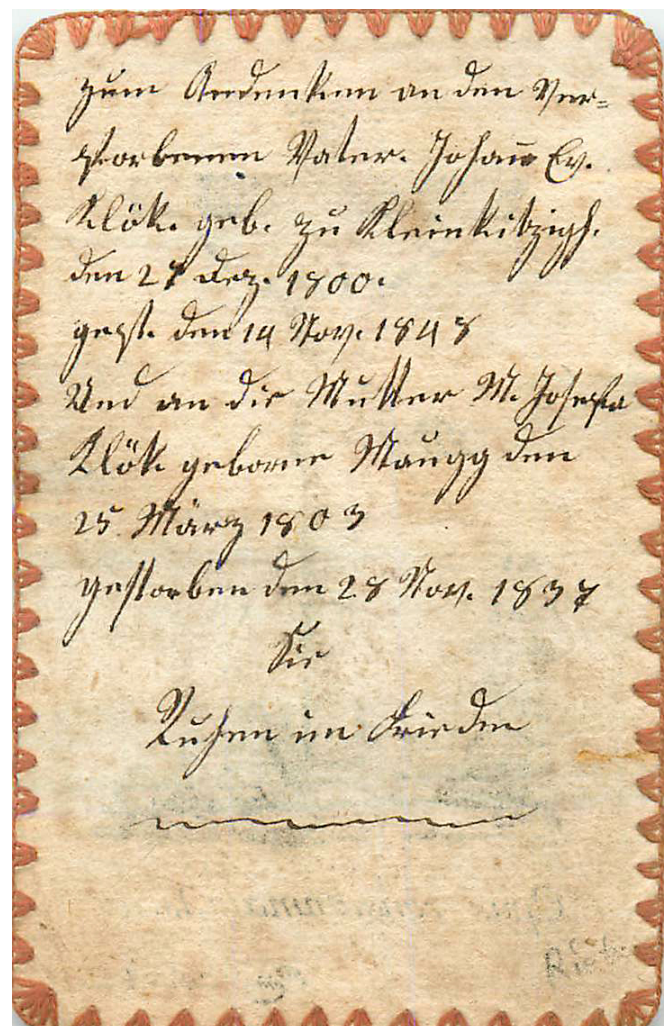 Zum Andenken an den Ver=
storbenen Vater. Johann Ev.
Klök. geb. zu Kleinkitzigh.
den 27 Dez. 1800.
gest. den 14 Nov. 1848
Und an die Mutter M. Josefa
Klök geborne Maugg den
25 März 1803
gestorben den 28 Nov. 1837
Sie
Ruhen im Frieden